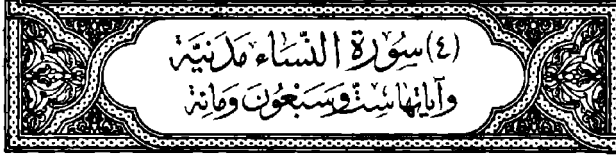 (٤) سُورَة النِّسَاء مَدَنِيَّة
وَآيَاتُهَا سِتّ وَسَبْعُونَ وَمِائَة